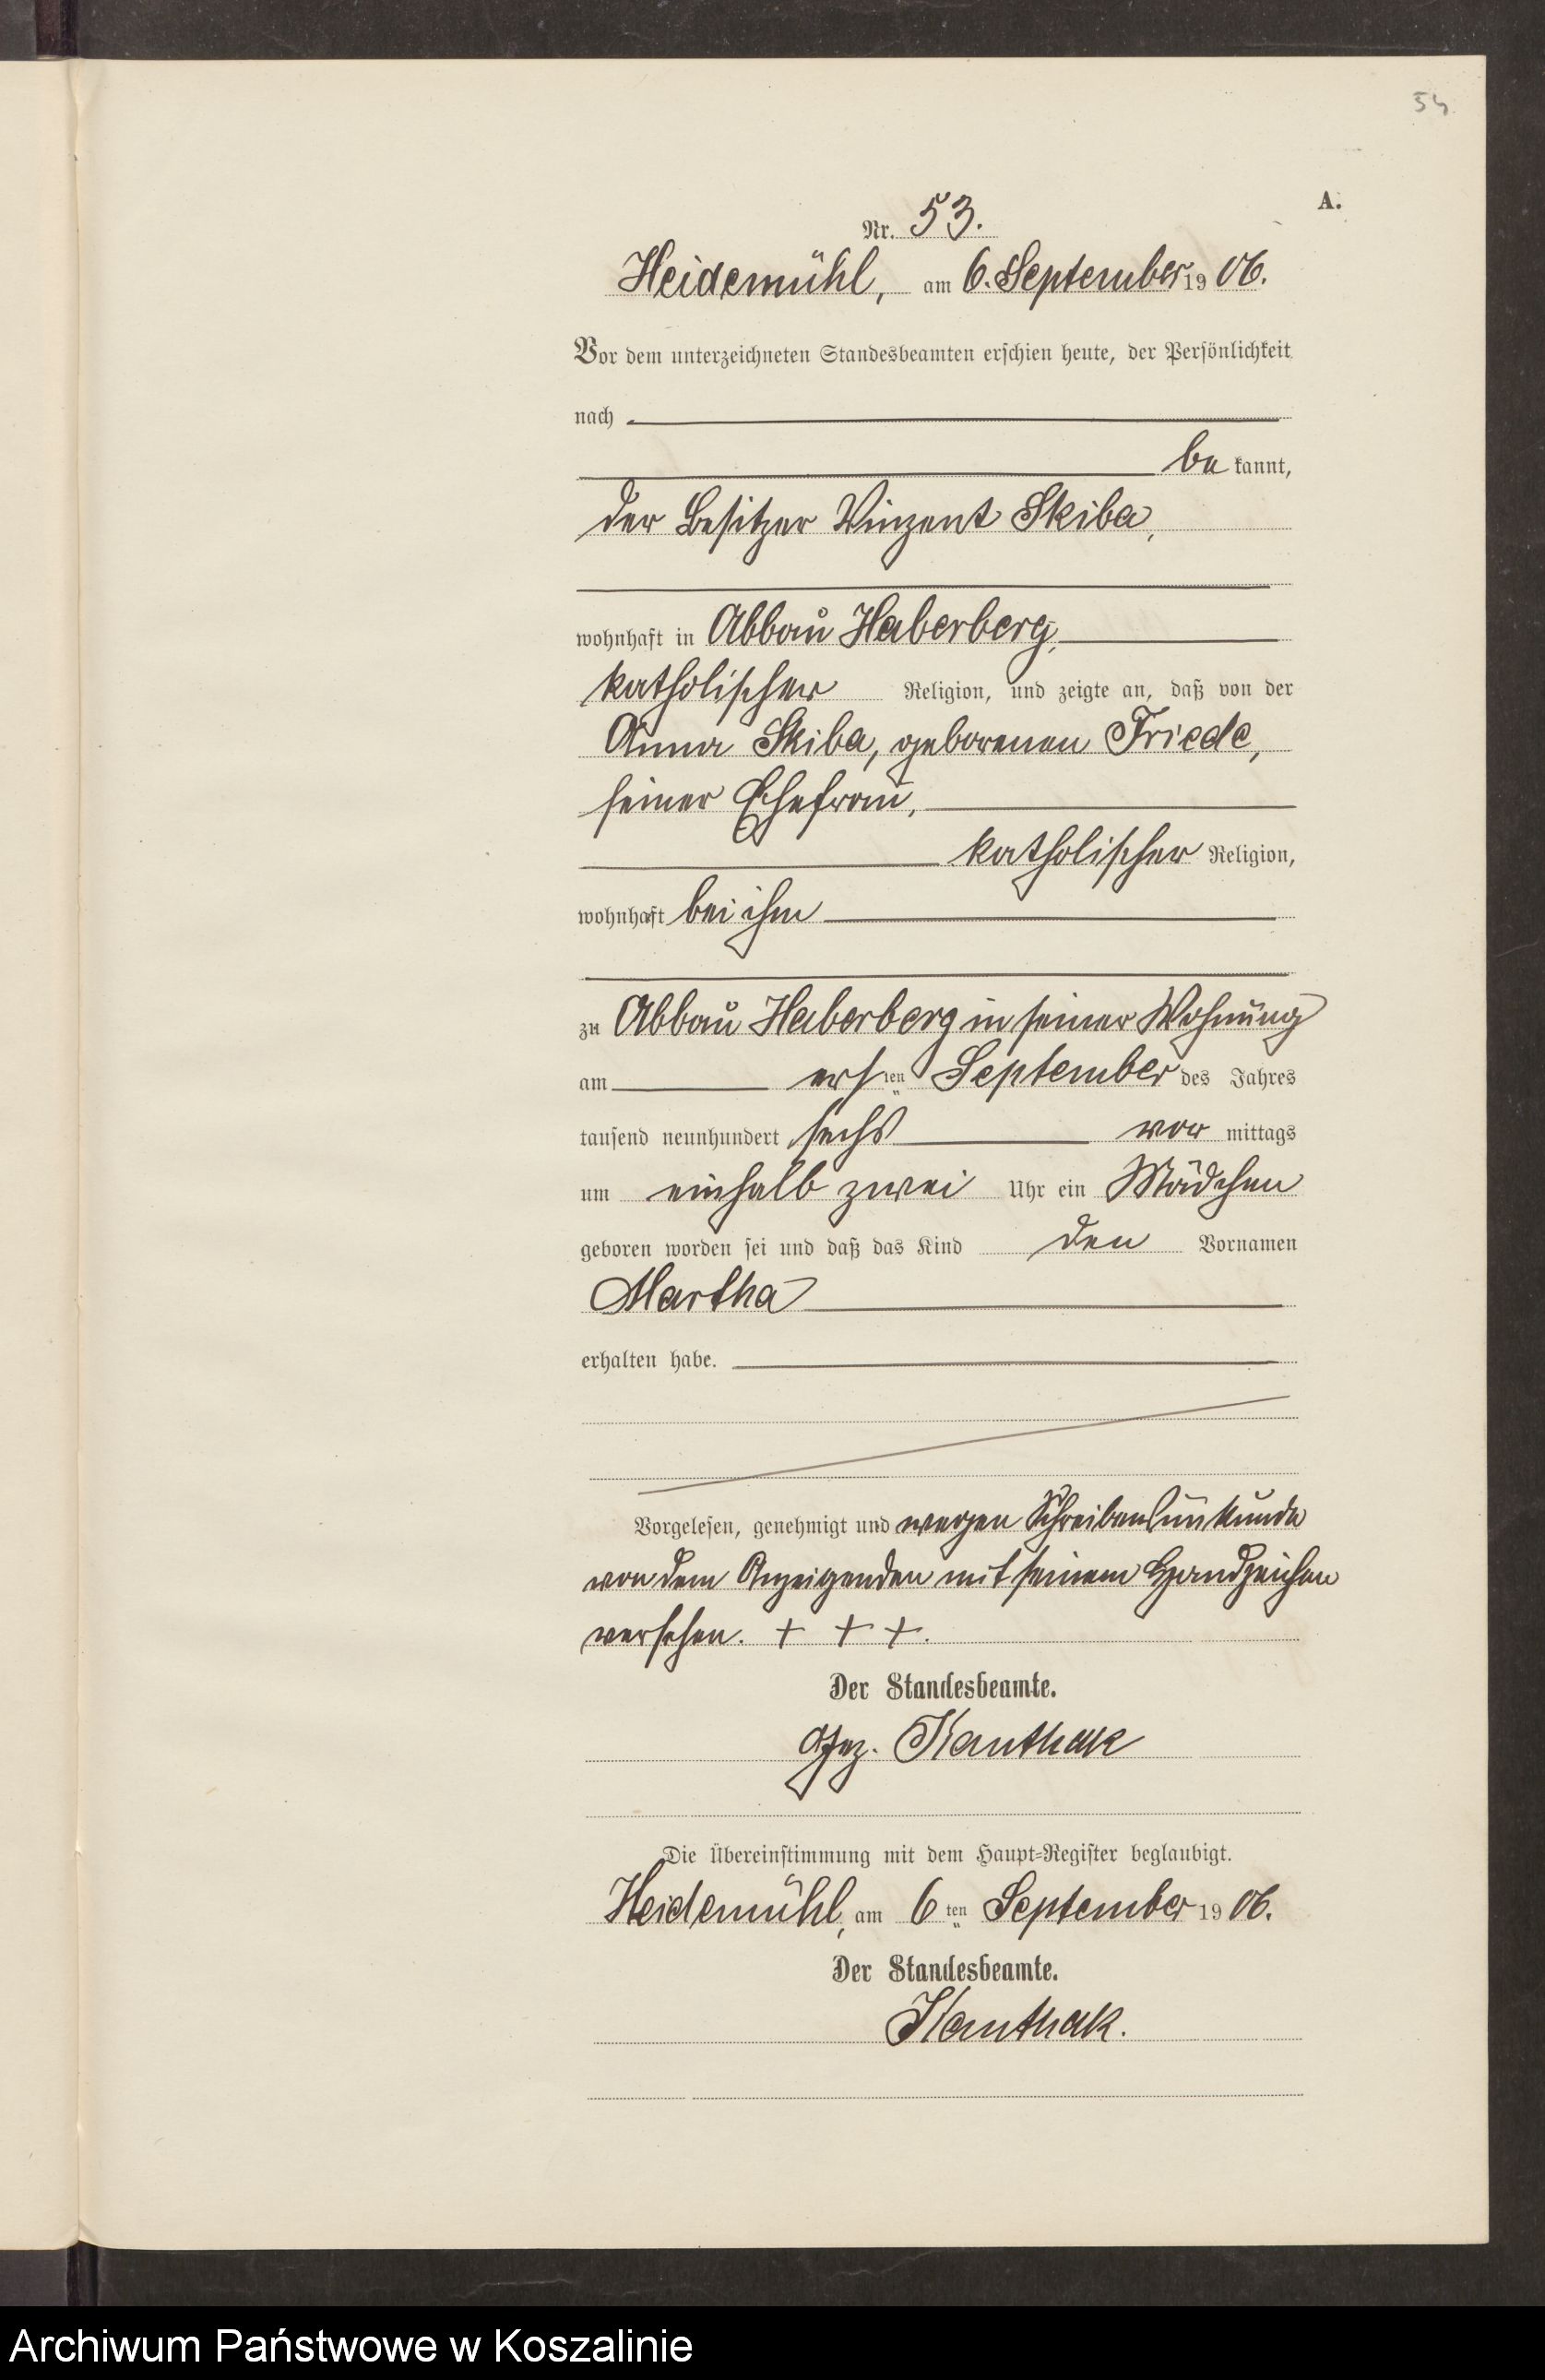 54
A.
Nr. 53.
Heidemühl, am 6. September 1906.
Vor dem unterzeichneten Standesbeamten erschien heute, der Persönlichkeit
nach
be kannt,
der Besitzer Vinzent Skiba,
wohnhaft in Abbau Haberberg,
katholischer Religion, und zeigte an, daß von der
Anna Skiba, geborenen Friede,
seiner Ehefrau,
katholischer Religion,
wohnhaft bei ihm
zu Abbau Haberberg in seiner Wohnung
am ersten September des Jahres
tausend neunhundert sechs vor mittags
um einhalb zwei Uhr ein Mädchen
geboren worden sei und daß das Kind den Vornamen
Martha
erhalten habe.
Vorgelesen, genehmigt und wegen Schreibensunkunde
von dem Anzeigenden mit seinem Handzeichen
versehen. + + +.
Der Standesbeamte.
Gez. Kanthak
Die Übereinstimmung mit dem Haupt-Register beglaubigt.
Heidemühl, am 6ten September 1906.
Der Standesbeamte.
Kanthak.
Archiwum Państwowe w Koszalinie